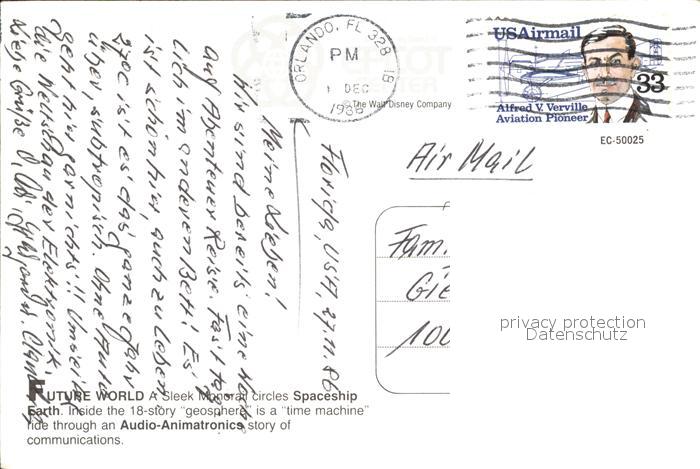 ORLANDO, FL 328
PM
1 DEC
1986
USAirmail
33
Alfred V. Verville
Aviation Pioneer
The Walt Disney Company
EC-50025
Air Mail
Florida, USA, 27.11.86
Fam.
Gie
100
privacy protection
Datenschutz
Meine Lieben!
Wir sind bereits eine Woche
auf Abenteuer Reise. Fast täg
lich im anderen Bett! Es
ist schön hier, auch zu Leben
27°C ist es das ganze Jahr
über subtropisch. Ohne Auto
geht hier gar nichts!!
die der Elektronik.
Liebe Grüße
FUTURE WORLD A Sleek Monorail circles Spaceship
Earth. Inside the 18-story "geosphere" is a "time machine"
ride through an Audio-Animatronics story of
communications.